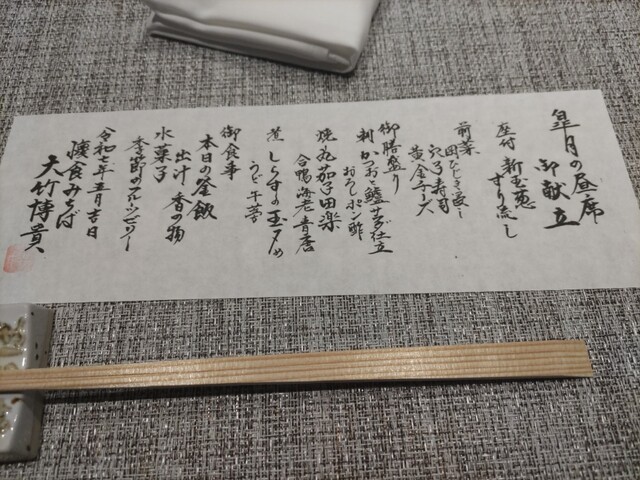 皐月の昼席
御献立
座付 新玉葱
すり流し
前菜
穴子寿司
黄金チーズ
御膳盛り
刺 かつお
仕立
おろしポン酢
焼 丸茄子田楽
合鴨 海老
煮 しらすの玉〆め
うど 牛蒡
御食事
本日の釜飯
出汁 香の物
水菓子
季節のフルーツゼリー
令和七年五月吉日
懐食みちば
大竹博貴